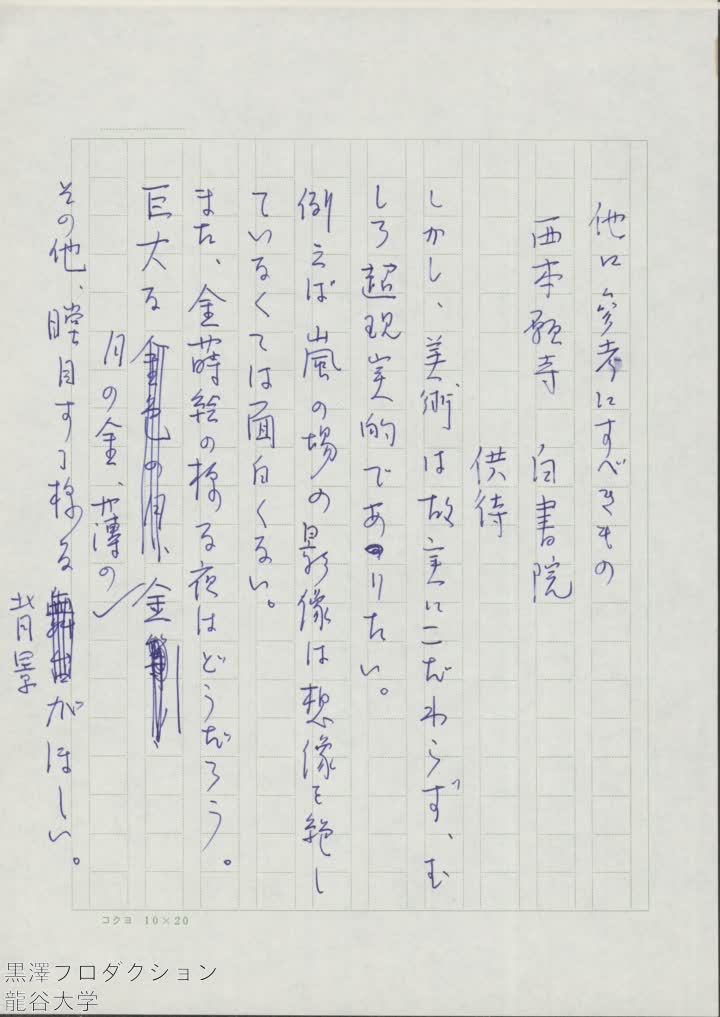 他に参考にすべきもの
西本願寺 白書院
供待
しかし、美術は故実にこだわらず、む
しろ超現実的でありたい。
例えば嵐の場の影像は想像を絶し
ていなくては面白くない。
また、金蒔絵の様な夜はどうだろう。
巨大な金色の
月の金、金
薄の
その他、瞠目する様な背景がほしい。
コクヨ 10×20
黒澤プロダクション
龍谷大学